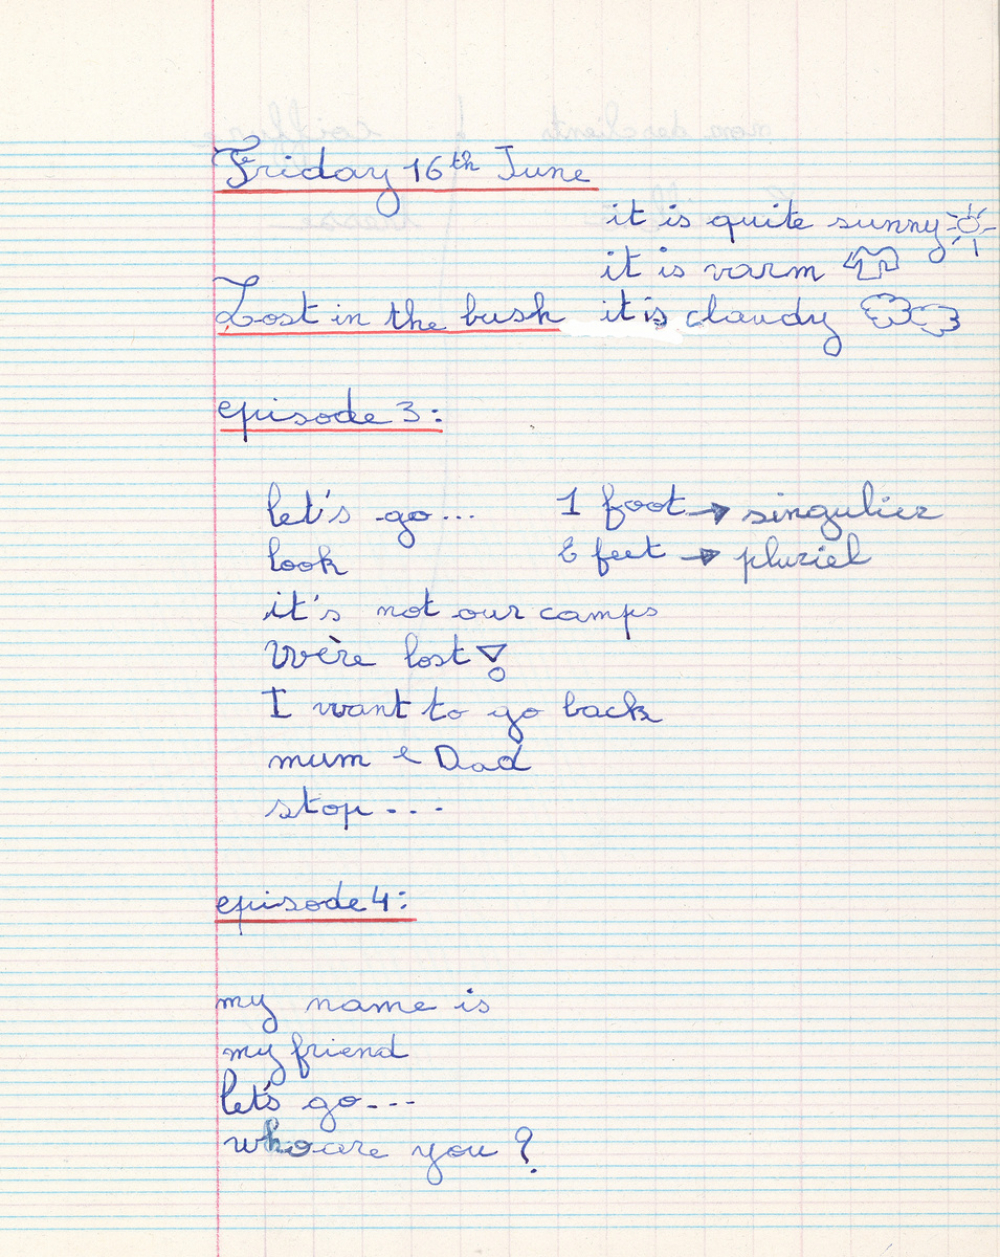 Friday 16th June
it is quite sunny
it is varm
Lost in the bush it is claudy
episode 3:
let's go... 1 foot → singulier
look 2 feet → pluriel
it's not our camps
Wère lost !
I want to go back
mum & Dad
stop...
episode 4:
my name is
my friend
let's go...
who are you ?